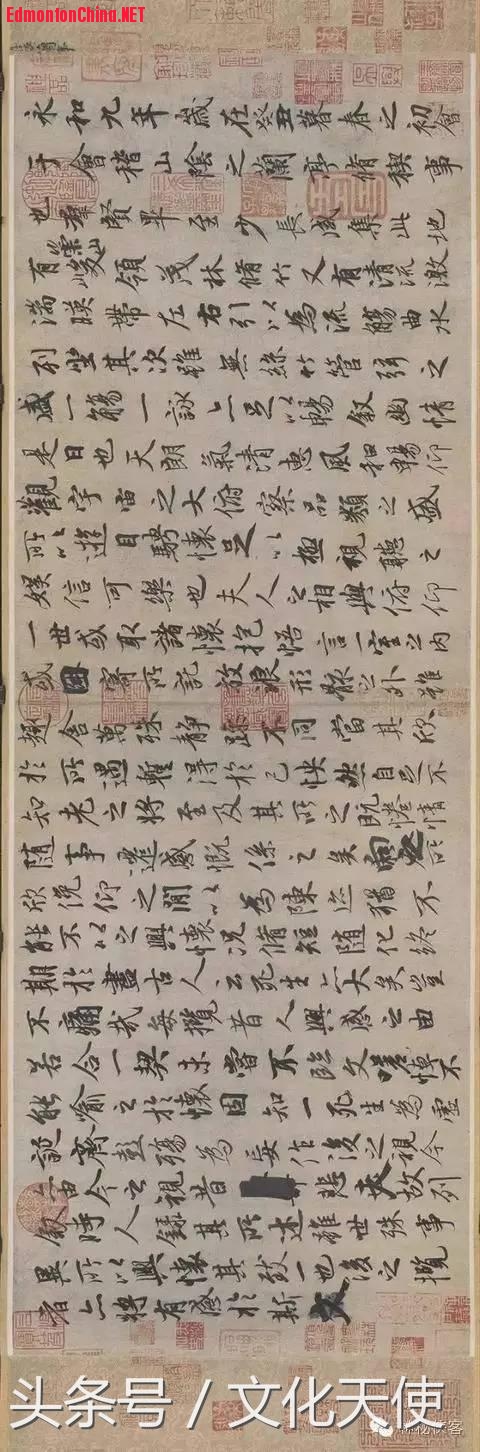 EdmontonChina.NET
永和九年歲在癸丑暮春之初會
于會稽山陰之蘭亭脩禊事
也羣賢畢至少長咸集此地
有崇山峻領茂林脩竹又有清流激
湍暎帶左右引以為流觴曲水
列坐其次雖無絲竹管弦之
盛一觴一詠亦足以暢敘幽情
是日也天朗氣清惠風和暢仰
觀宇宙之大俯察品類之盛
所以遊目騁懷足以極視聽之
娛信可樂也夫人之相與俯仰
一世或取諸懷抱悟言一室之內
或因寄所託放浪形骸之外雖
趣舍萬殊靜躁不同當其欣
於所遇暫得於己怏然自足不
知老之將至及其所之既惓情
隨事遷感慨係之矣向之所
欣俛仰之閒以為陳迹猶不
能不以之興懷況脩短隨化終
期於盡古人云死生亦大矣豈
不痛哉每攬昔人興感之由
若合一契未嘗不臨文嗟悼不
能喻之於懷固知一死生為虛
誕齊彭殤為妄作後之視今
亦由今之視昔悲夫故列
敘時人錄其所述雖世殊事
異所以興懷其致一也後之攬
者亦將有感於斯文
头条号 / 文化天使